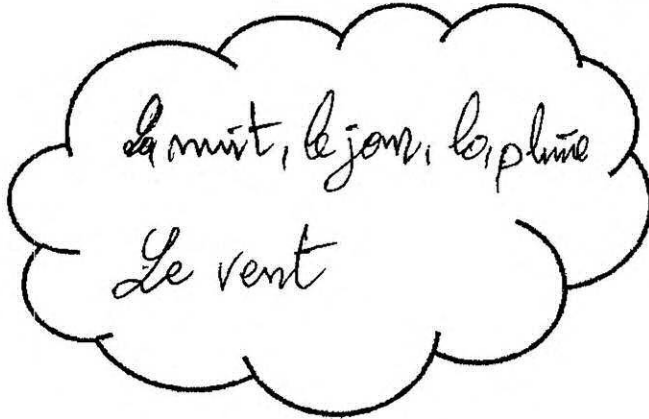 La nuit, le jour, la pluie
Le vent